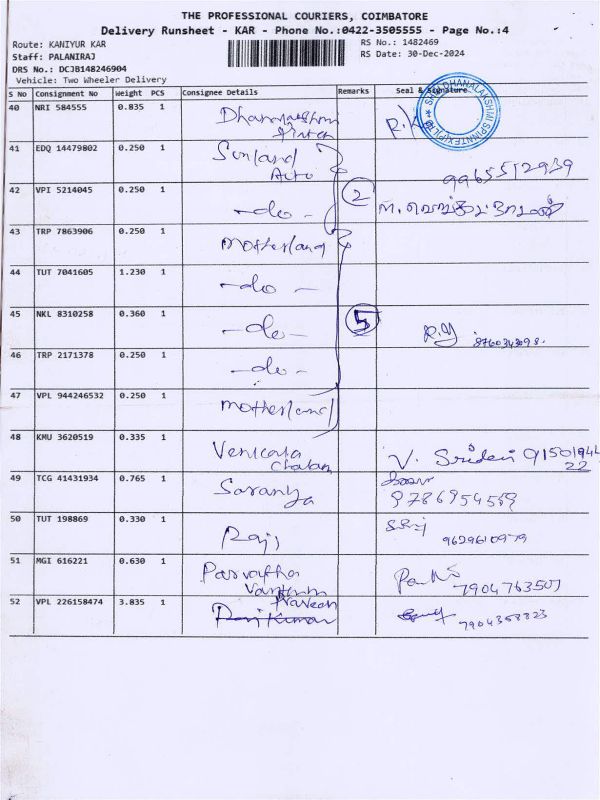 THE PROFESSIONAL COURIERS, COIMBATORE
Delivery Runsheet - KAR - Phone No.:0422-3505555 - Page No.:4
Route: KANIYUR KAR
RS No.: 1482469
Staff: PALANIRAJ
RS Date: 30-Dec-2024
DRS No.: DCJB148246904
Vehicle: Two Wheeler Delivery
S No Consignment No Weight PCS Consignee Details Remarks Seal & Signature
40 NRI 584555 0.835 1
41 EDQ 14479802 0.250 1 Sunland Auto 9965512939
42 VPI 5214045 0.250 1 -do- 2
43 TRP 7863906 0.250 1 Motherland
44 TUT 7041605 1.230 1 -do-
45 NKL 8310258 0.360 1 -do- 5
46 TRP 2171378 0.250 1 -do-
47 VPL 944246532 0.250 1 Motherland
48 KMU 3620519 0.335 1 Venkata V. Sridevi 9150194422
49 TCG 41431934 0.765 1 Saranya 9786954559
50 TUT 198869 0.330 1 Raji 9629610979
51 MGI 616221 0.630 1 Parvatha 7904763507
52 VPL 226158474 3.835 1 Praveen Raj Kumar 7904358823